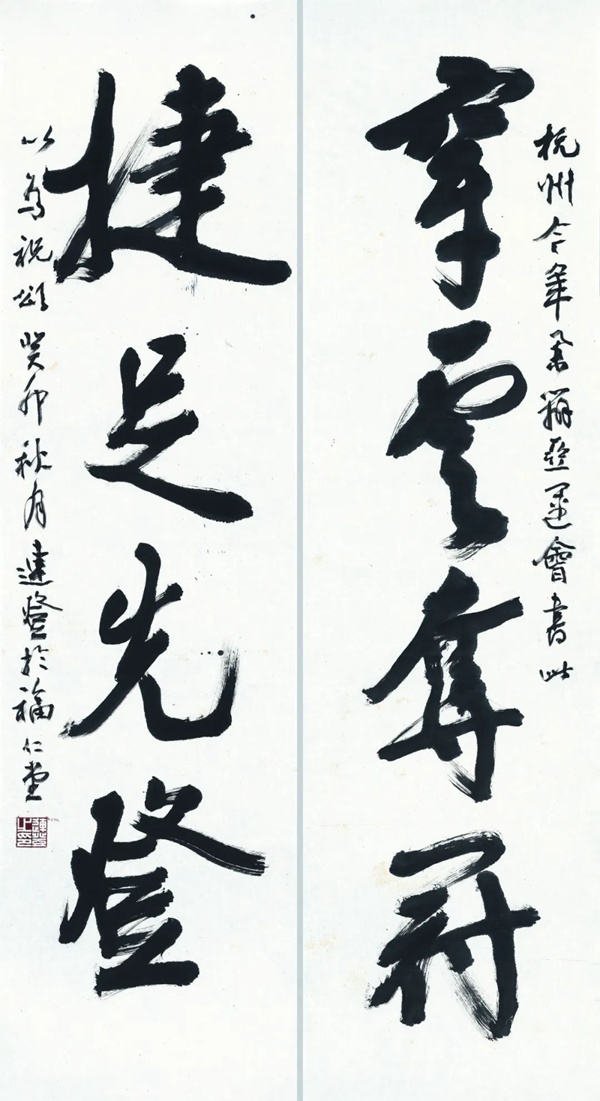 杭州今年承辦亞運會書此
穿雲奪冠
捷足先登
以為祝頌癸卯秋月連登於福仁堂